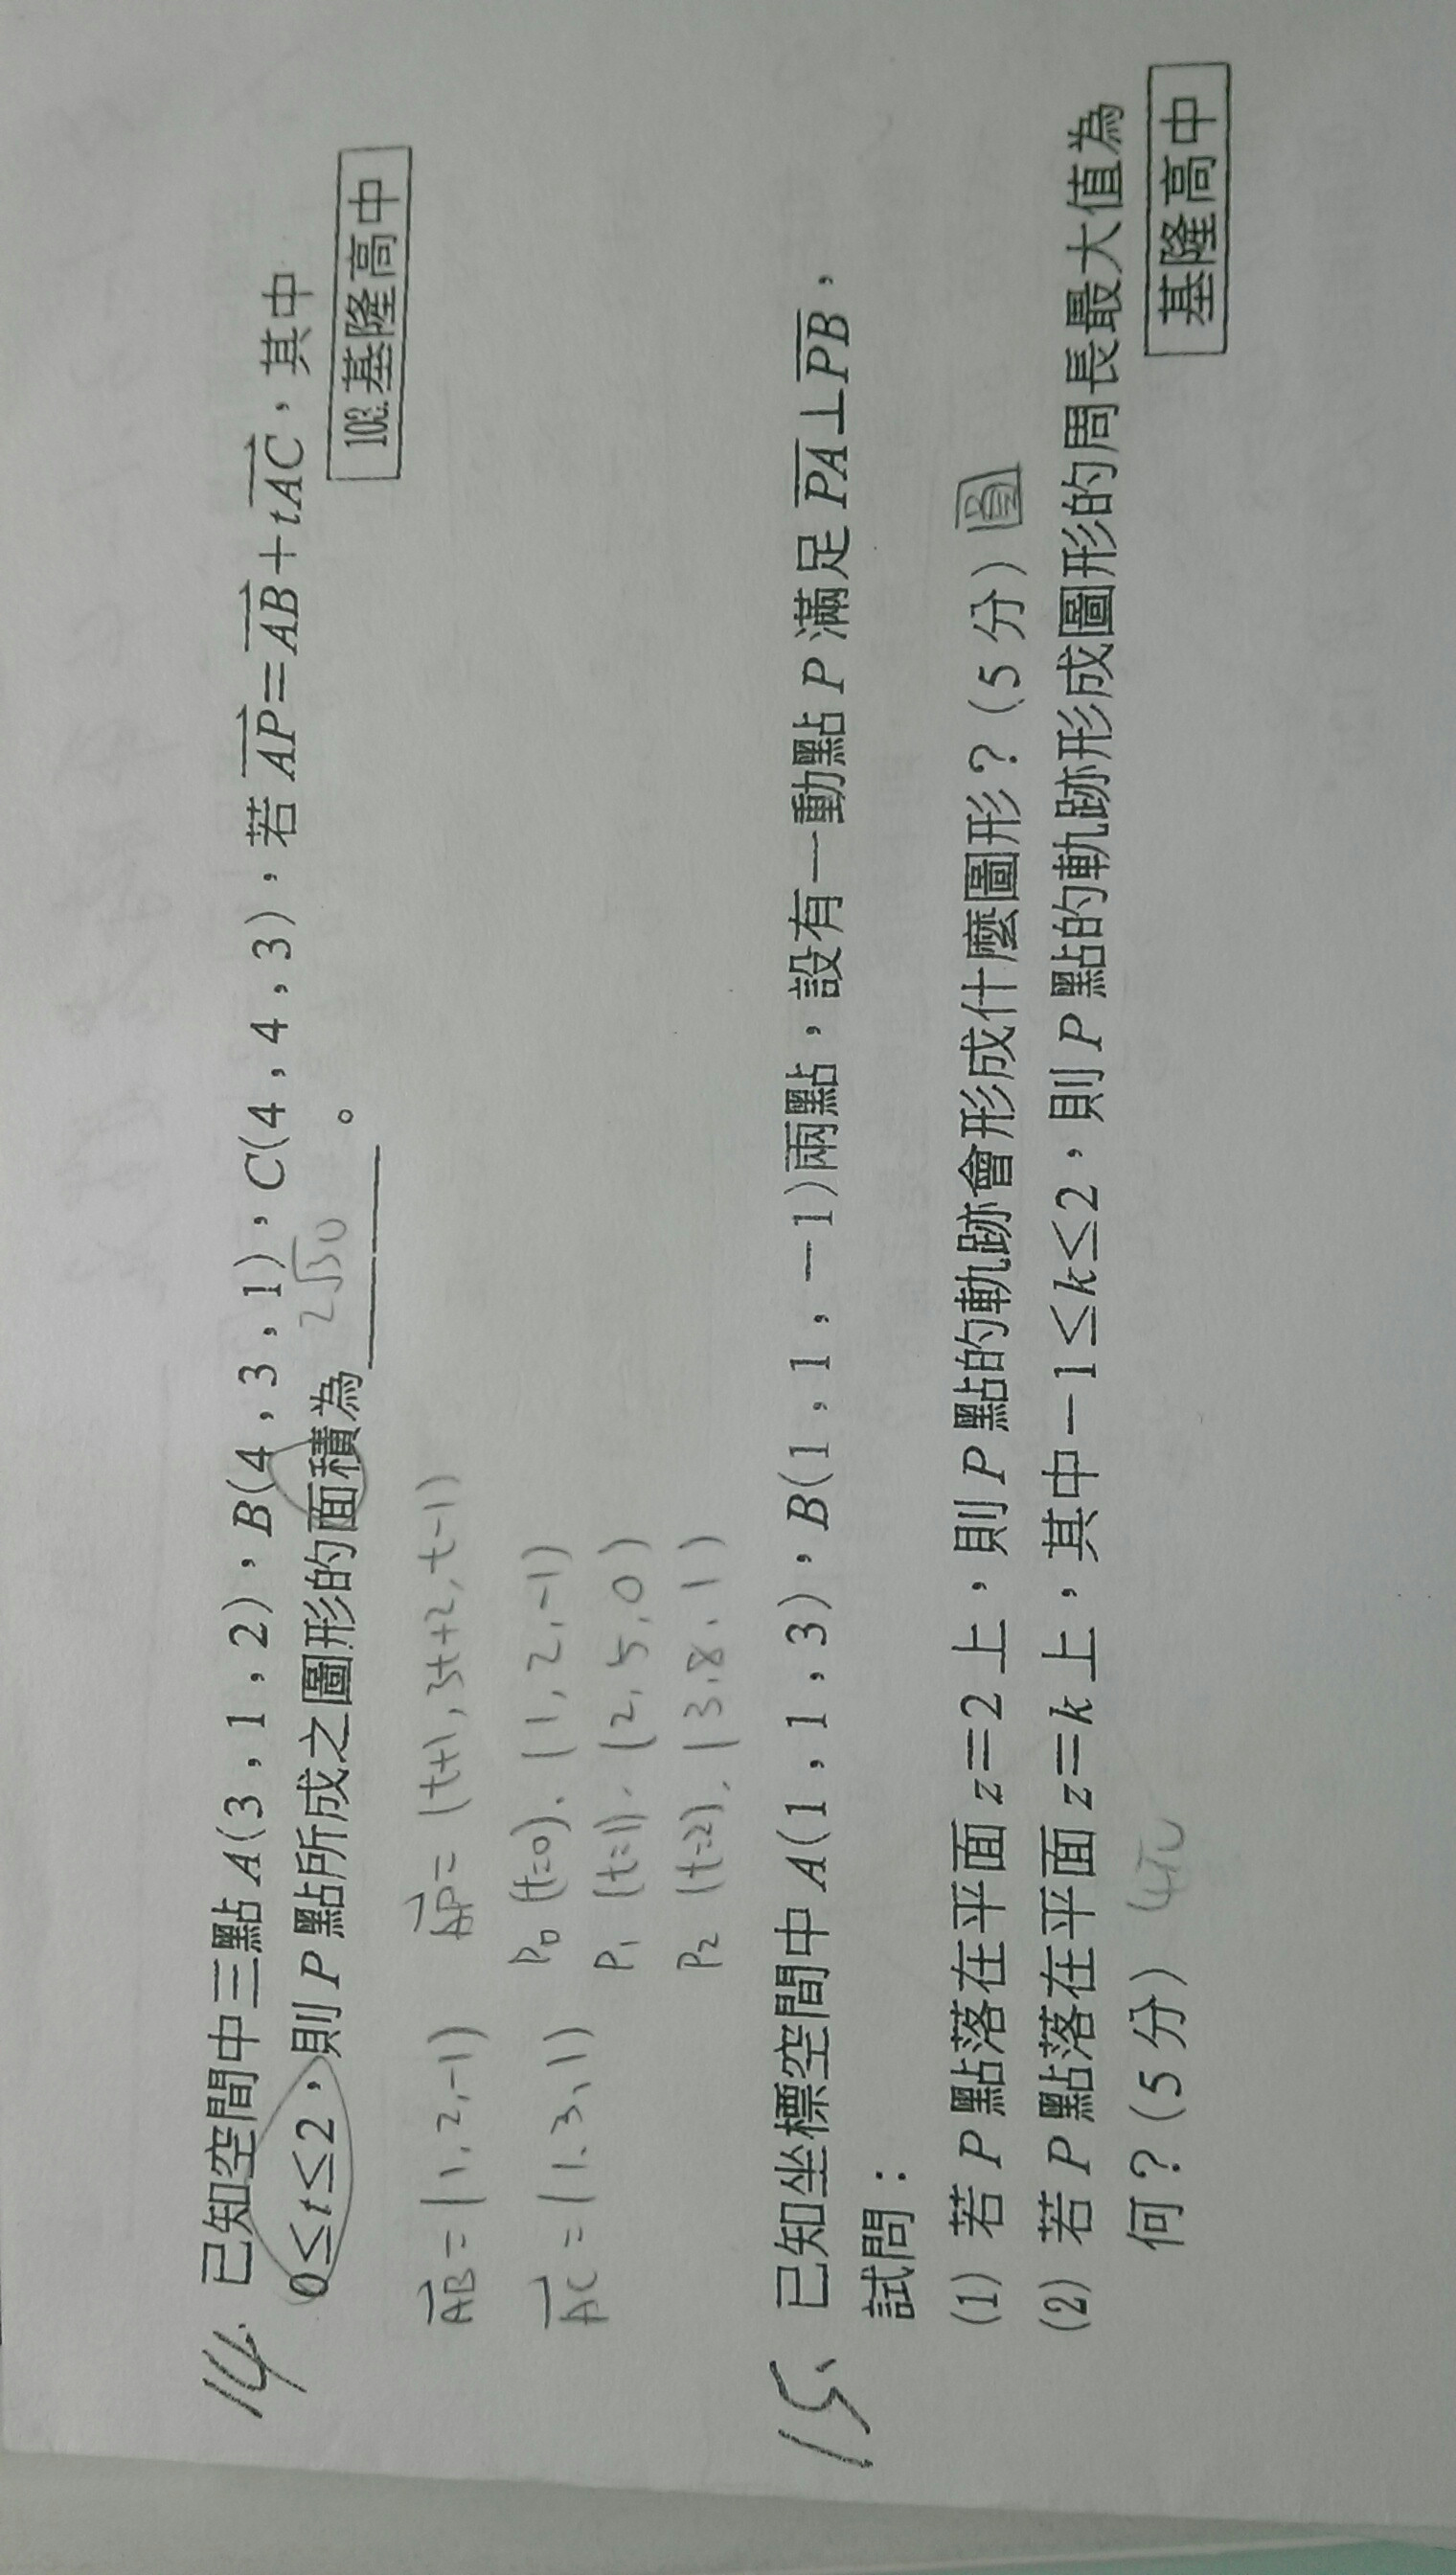 14. 已知空間中三點 A(3,1,2),B(4,3,1),C(4,4,3),若 AP=AB+tAC,其中
0≤t≤2,則 P 點所成之圖形的面積為 2√30 。 103.基隆高中
AB=(1,2,-1) AP=(t+1,3t+2,t-1)
AC=(1,3,1) P0(t=0).(1,2,-1)
P1(t=1).(2,5,0)
P2(t=2).(3,8,1)
15、已知坐標空間中 A(1,1,3),B(1,1,-1)兩點,設有一動點 P 滿足 PA⊥PB,
試問:
(1) 若 P 點落在平面 z=2 上,則 P 點的軌跡會形成什麼圖形?(5 分) 圓
(2) 若 P 點落在平面 z=k 上,其中-1≤k≤2,則 P 點的軌跡形成圖形的周長最大值為
何?(5 分) (4π 基隆高中